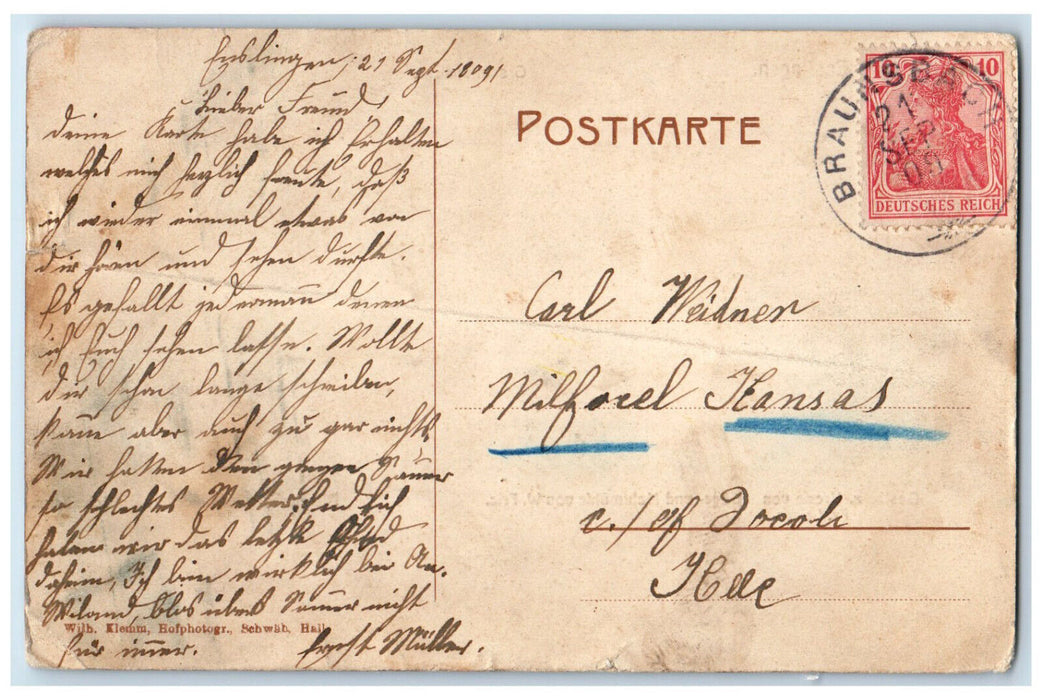 Enslingen, 21 Sept. 1909
Lieber Freund,
deine Karte habe ich Erhalten
welches mich herzlich freute, daß
ich wieder einmal etwas von
dir hören und sehen durfte.
Es gefällt jedermann denen
ich Euch sehen lasse. Wollte
dir schon lange schreiben,
kam aber auch zu gar nichts
Wir hatten den ganzen Sommer
so schlechtes Wetter. Endlich
haben wir das letzte
daheim, Ich bin wirklich bei
blos übers Sommer nicht
für immer. Ernst Müller.
Wilh. Klemm, Hofphotogr., Schwäb. Hall
POSTKARTE
10 10
DEUTSCHES REICH
BRAUNSBACH
21
SEP
09
Carl Weidner
Milford Kansas
c./of Jocob
Hee